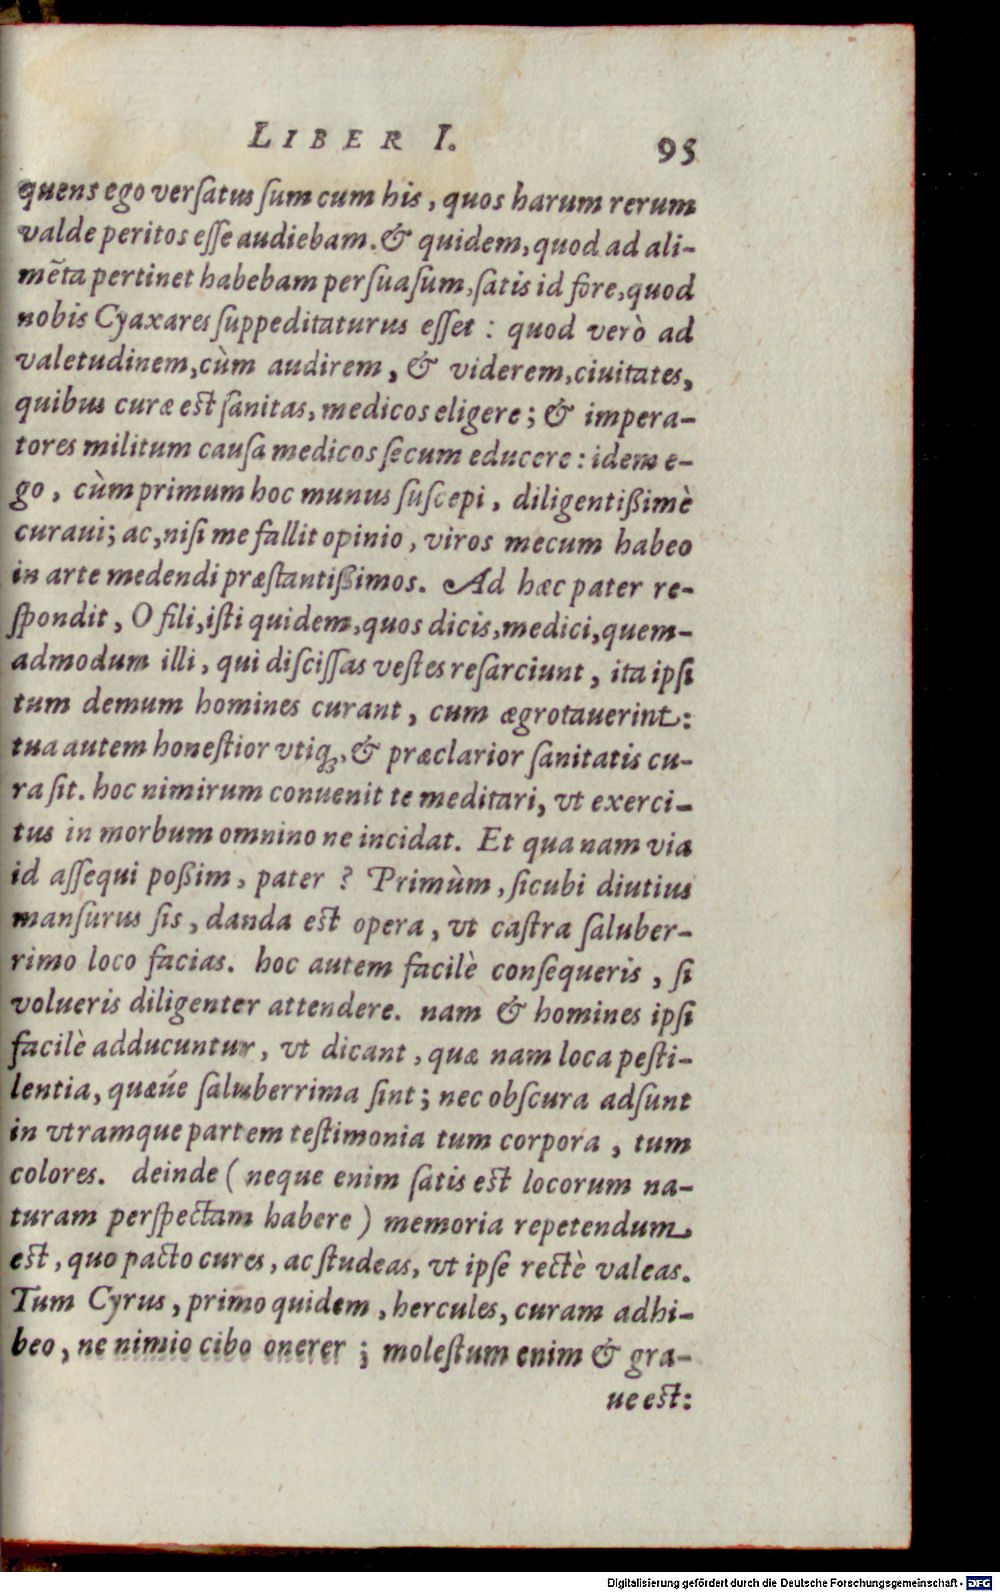 LIBER I. 95
quens ego versatus sum cum his, quos harum rerum
valde peritos esse audiebam. & quidem, quod ad ali-
mēta pertinet habebam persuasum, satis id fore, quod
nobis Cyaxares suppeditaturus esset : quod verò ad
valetudinem, cùm audirem, & viderem, ciuitates,
quibus curæ est sanitas, medicos eligere; & impera-
tores militum causa medicos secum educere : idem e-
go, cùm primum hoc munus suscepi, diligentißimè
curaui; ac, nisi me fallit opinio, viros mecum habeo
in arte medendi præstantißimos. Ad hæc pater re-
spondit, O fili, isti quidem, quos dicis, medici, quem-
admodum illi, qui discissas vestes resarciunt, ita ipsi
tum demum homines curant, cum ægrotauerint:
tua autem honestior vtiq3, & præclarior sanitatis cu-
ra sit. hoc nimirum conuenit te meditari, vt exerci-
tus in morbum omnino ne incidat. Et qua nam via
id assequi poßim, pater ? Primùm, sicubi diutius
mansurus sis, danda est opera, vt castra saluber-
rimo loco facias. hoc autem facilè consequeris, si
volueris diligenter attendere. nam & homines ipsi
facilè adducuntur, vt dicant, quæ nam loca pesti-
lentia, quæúe saluberrima sint; nec obscura adsunt
in vtramque partem testimonia tum corpora, tum
colores. deinde ( neque enim satis est locorum na-
turam perspectam habere ) memoria repetendum
est, quo pacto cures, ac studeas, vt ipse rectè valeas.
Tum Cyrus, primo quidem, hercules, curam adhi-
beo, ne nimio cibo onerer ; molestum enim & gra-
ue est:
Digitalisierung gefördert durch die Deutsche Forschungsgemeinschaft - DFG